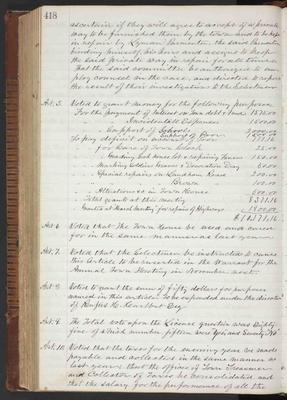 418
ascertain if they will agree to accept of a private
way to be furnished them by the town and to be kept
in repair by Lyman Parmenter, the said Parmenter
binding himself, his heirs and assigns to keep
the said private way in repair for all time.
That the said committee be authorized to em-
ploy counsel in the case, and directed to report
the result of their investigation to the Selectmen
Art. 5. Voted to grant money for the following purposes
For the payment of Interest on Town debt and
" Incidental Expenses
" Support of Schools
" Support of Poor
To pay deficit on
" for Care of Town Clock 25.00
" Heading book house lot & repairing House
" Marking Soldiers Graves & Decoration Day
" Special repairs on Landham Road 200.00
" " " " 100.00
" Alterations in Town House 600.00
Total grants at this meeting
Grants at March Meeting for repairs of Highways
Art. 6. Voted That The Town House be used and cared
for in the same manner as last year.
Art. 7. Voted that the Selectmen be instructed to cause
this Article to be inserted in the Warrant for the
Annual Town Meeting in November next.
Art. 8. Voted to grant the sum of fifty dollars for purposes
named in this article. To be expended under the direction
of Rufus H. Hurlbut Esq.
Art. 9. The Total vote upon the License question was Eighty
five of which number fifteen were Yes, and Seventy No
Art. 10. Voted that the taxes for the ensuing year be made
payable and collected in the same manner as
last year & that the offices of Town Treasurer
and Collector of Taxes be consolidated and
that the salary for the performance of all the